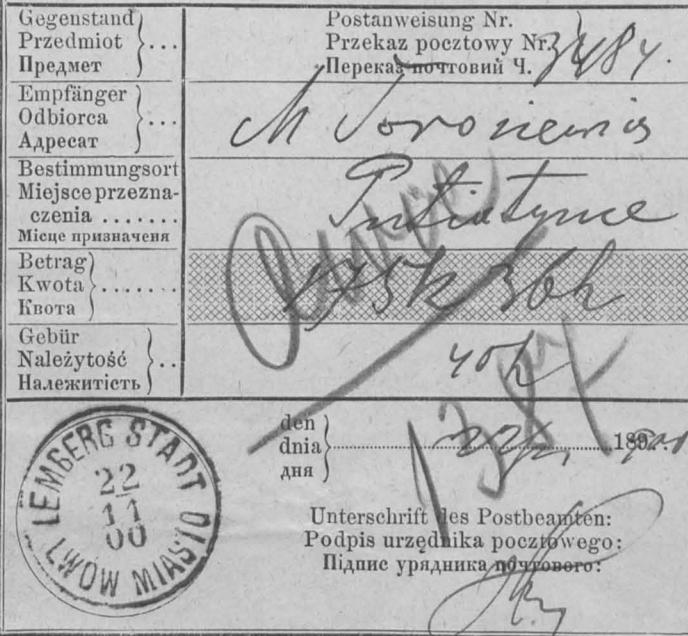 Gegenstand
Przedmiot ...
Предмет
Postanweisung Nr.
Przekaz pocztowy Nr. 3484.
Переказ почтовий Ч.
Empfänger
Odbiorca ...
Адресат
M
Bestimmungsort
Miejsce przezna-
czenia .......
Місце призначеня
Putiatynce
Betrag
Kwota .......
Квота
175k 36h
Gebür
Należytość ..
Належитість
40h
den
dnia
дня
22/11 189
LEMBERG STADT
22
11
00
LWÓW MIASTO
Unterschrift des Postbeamten:
Podpis urzędnika pocztowego:
Підпис урядника почтового: